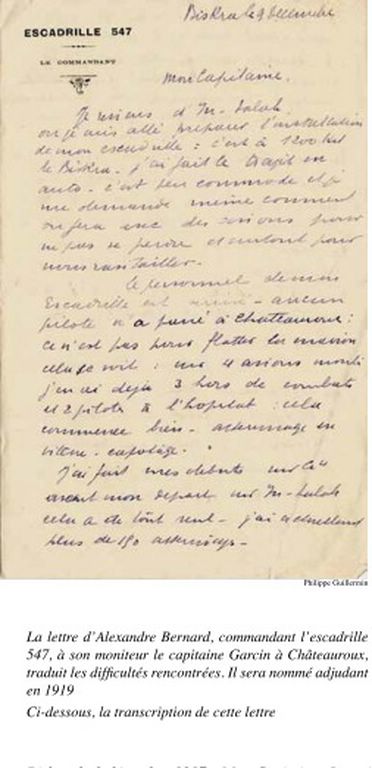 Biskra le 9 décembre
ESCADRILLE 547
LE COMMANDANT
Mon Capitaine,
Je reviens d'In-Salah
où je suis allé préparer l'installation
de mon escadrille : c'est à 1200 km
de Biskra. J'ai fait le trajet en
auto. C'est peu commode et je
me demande même comment
on fera avec des avions pour
ne pas se perdre et surtout pour
nous ravitailler.
Le personnel de mon
Escadrille est - aucun
pilote n'a passé à Chateauroux :
ce n'est pas pour flatter la maison
cela se voit : sur 4 avions montés
j'en ai déjà 3 hors de combats
et 2 pilotes à l'hopital : cela
commence bien - atterrissage en
vitesse - capotage.
J'ai fait mes débuts sur
avant mon départ sur In-Salah
cela a été tout seul - j'ai actuellement
plus de 150 atterrissages -
Philippe Guillermin
La lettre d'Alexandre Bernard, commandant l'escadrille
547, à son moniteur le capitaine Garcin à Châteauroux,
traduit les difficultés rencontrées. Il sera nommé adjudant
en 1919
Ci-dessous, la transcription de cette lettre